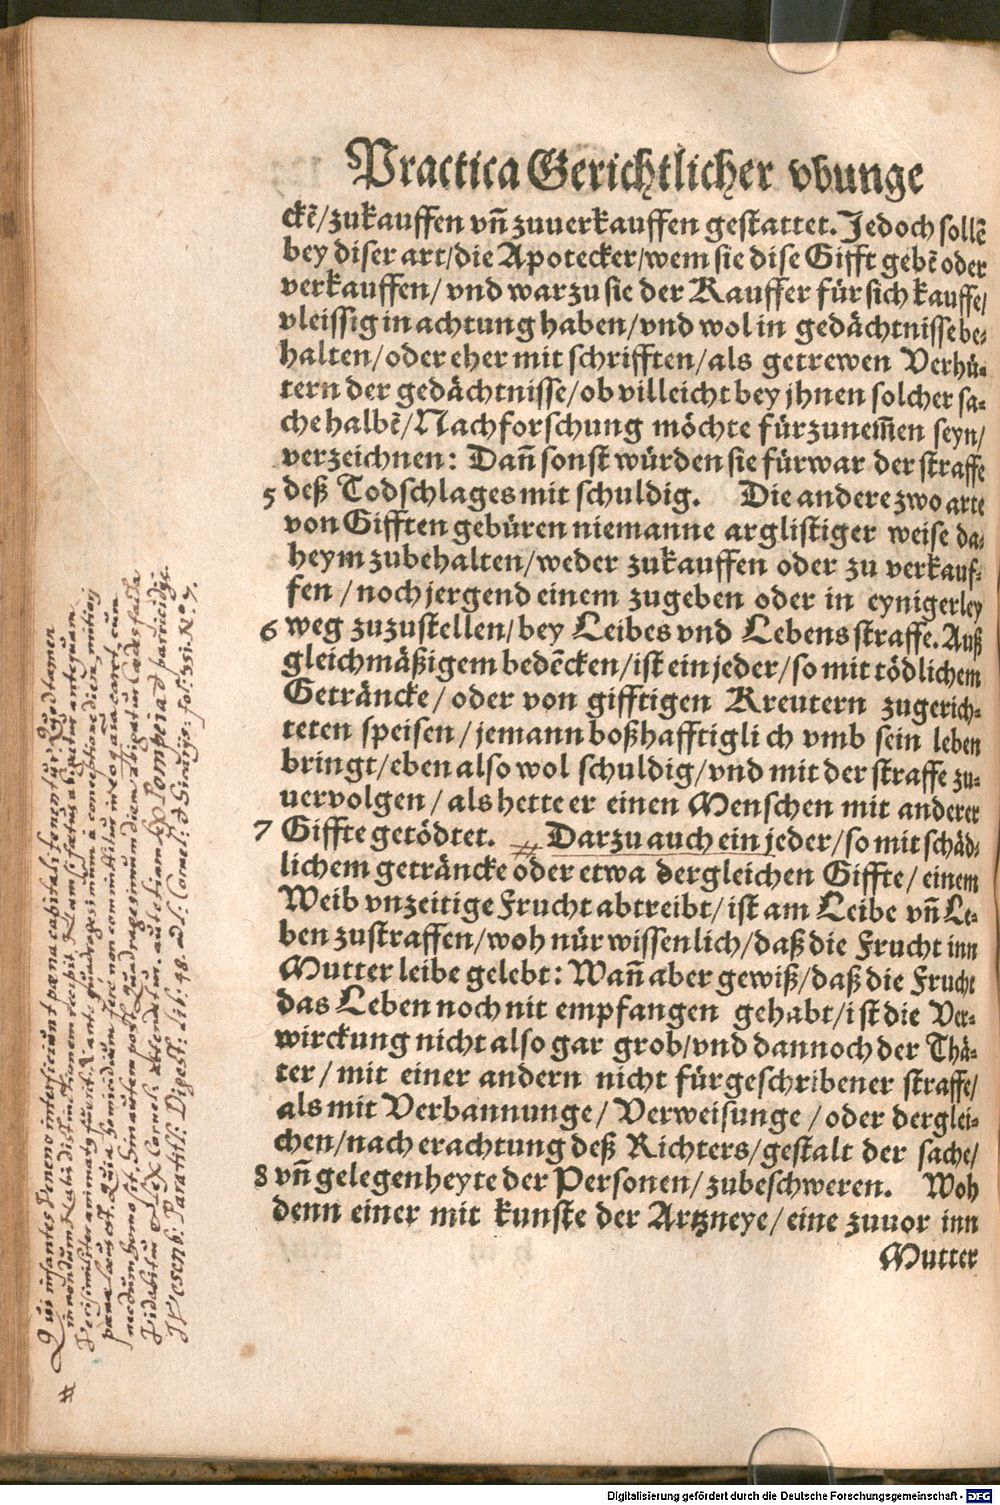 Practica Gerichtlicher vbunge
ckẽ/zukauffen vñ zuuerkauffen gestattet. Jedoch sollẽ
bey diser art/die Apotecker/wem sie dise Gifft gebẽ oder
verkauffen/ vnd warzu sie der Kauffer für sich kauffe/
vleissig in achtung haben/vnd wol in gedächtnisse be-
halten/oder eher mit schrifften/als getrewen Verhü-
tern der gedächtnisse/ob villeicht bey jhnen solcher sa-
che halbẽ/Nachforschung möchte fürzunem̃en seyn/
verzeichnen: Dañ sonst würden sie fürwar der straffe
5 deß Todschlages mit schuldig. Die andere zwo arte
von Gifften gebüren niemanne arglistiger weise da-
heym zubehalten/weder zukauffen oder zu verkauf-
fen / noch jergend einem zugeben oder in eynigerley
6 weg zuzustellen/bey Leibes vnd Lebens straffe. Auß
gleichmäßigem bedẽcken/ist ein jeder/so mit tödlichem
Geträncke/oder von gifftigen Kreutern zugerich-
teten speisen/jemann boßhafftiglich vmb sein leben
bringt/eben also wol schuldig/vnd mit der straffe zu-
uervolgen/als hette er einen Menschen mit anderer
7 Giffte getödtet. # Darzu auch ein jeder/so mit schäd-
lichem geträncke oder etwa dergleichen Giffte/einem
Weib vnzeitige Frucht abtreibt/ist am Leibe vñ Le-
ben zustraffen/woh nür wissenlich/daß die Frucht inn
Mutter leibe gelebt: Wañ aber gewiß/daß die Frucht
das Leben noch nit empfangen gehabt/ist die Ver-
wirckung nicht also gar grob/vnd dannoch der Thä-
ter/mit einer andern nicht fürgeschribener straffe/
als mit Verbannunge/Verweisunge/oder derglei-
chen/nach erachtung deß Richters/gestalt der sache/
8 vñ gelegenheyte der Personen/zubeschweren. Woh
denn einer mit kunste der Artzneye/eine zuuor inn
Mutter
#
Qui infantes veneno interficiunt pæna capitali tenentur:
Pompeia de parricidijs
Wesenb: Paratitl: Digest: Lib: 48. ad L: Cornel: de Sicarijs: fol: 551. No. 7.
Digitalisierung gefördert durch die Deutsche Forschungsgemeinschaft - DFG